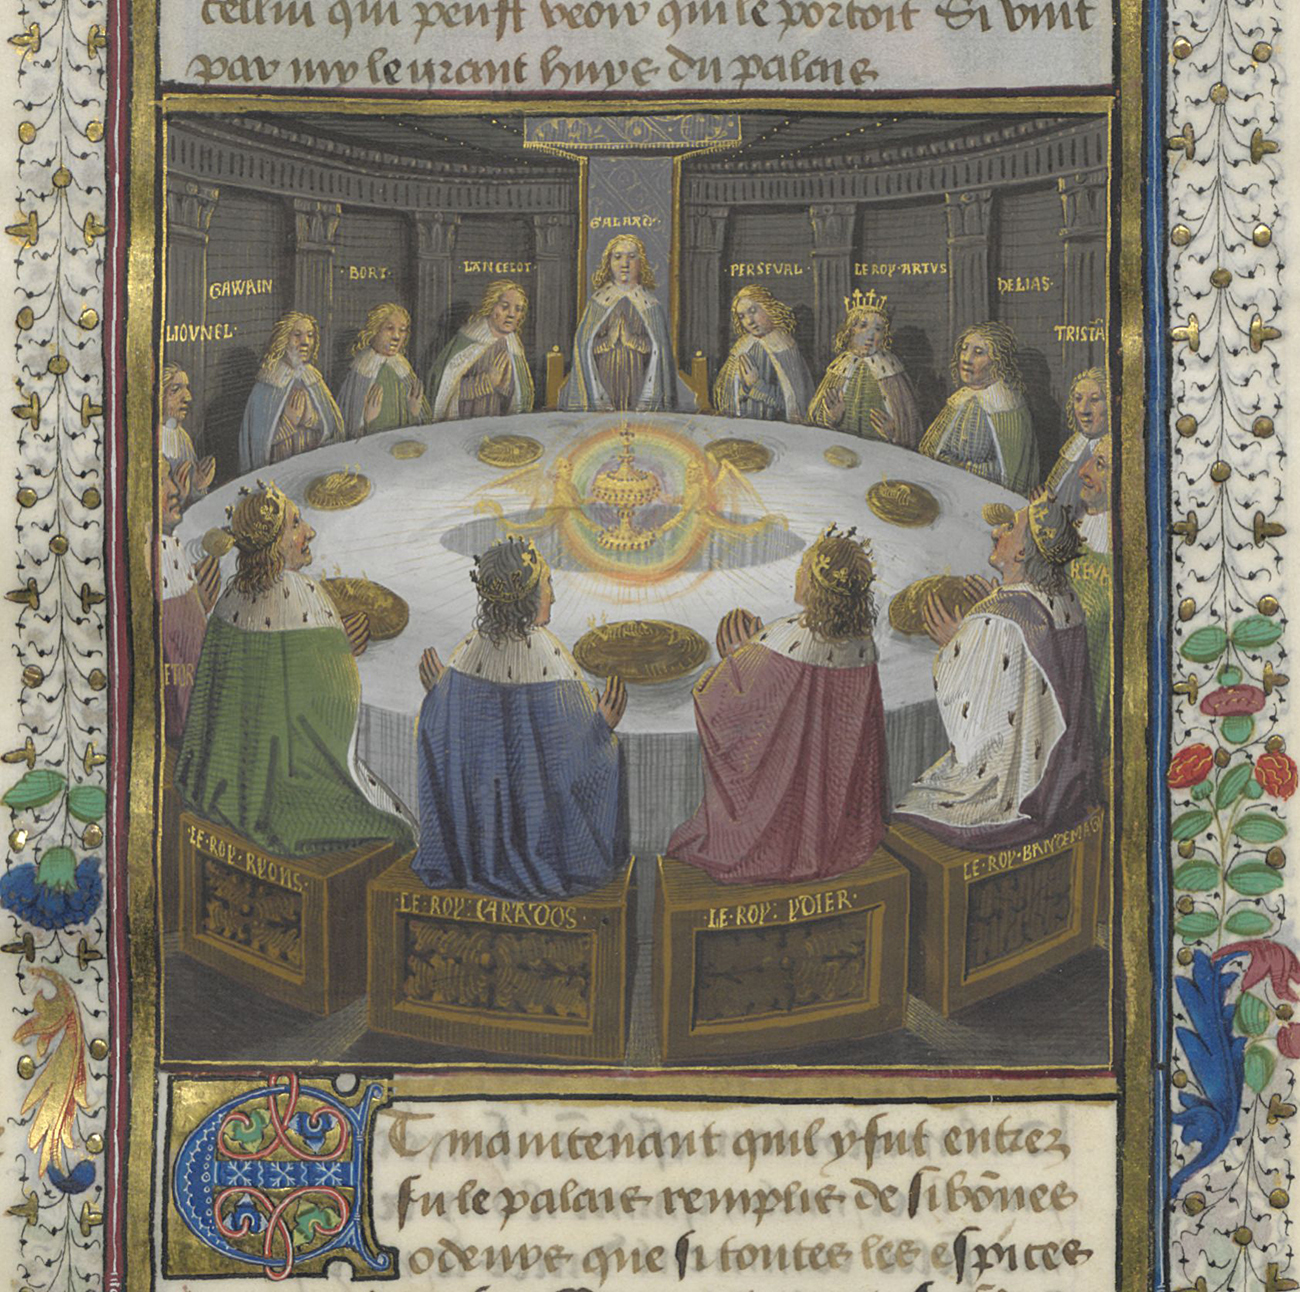 cellui qui peust veoir qui le portoit Si vint
par my le grant huys du palais
GALAAD
GAWAIN
BORT
LANCELOT
PERSEVAL
LE ROY ARTVS
HELIAS
LIOUNEL
TRISTÃ
LE ROY RYONS
LE ROY CARADOS
LE ROY YDIER
LE ROY BANDEMAG
ETOR
Et maintenant quil y fut entrez
fu le palais remplis de si bõnes
odeurs que si toutes les espices